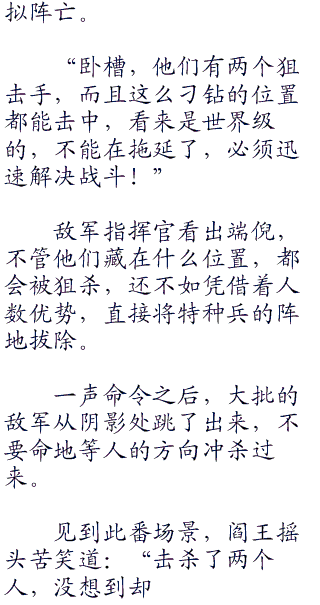 拟阵亡。
“卧槽，他们有两个狙
击手，而且这么刁钻的位置
都能击中，看来是世界级
的，不能在拖延了，必须迅
速解决战斗！”
敌军指挥官看出端倪，
不管他们藏在什么位置，都
会被狙杀，还不如凭借着人
数优势，直接将特种兵的阵
地拔除。
一声命令之后，大批的
敌军从阴影处跳了出来，不
要命地等人的方向冲杀过
来。
见到此番场景，阎王摇
头苦笑道：“击杀了两个
人，没想到却